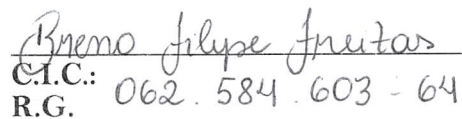 Breno Filype Freitas
C.I.C.: 062.584.603-64
R.G.